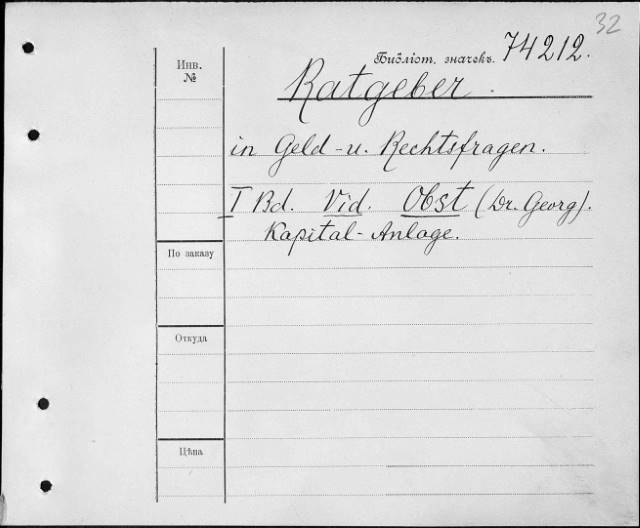 32
Библіот. значекъ. 74212.
Инв.
№
Ratgeber.
in Geld-u. Rechtsfragen.
I Bd. Vid. Obst (Dr. Georg).
Kapital-Anlage.
По заказу
Откуда
Цѣна